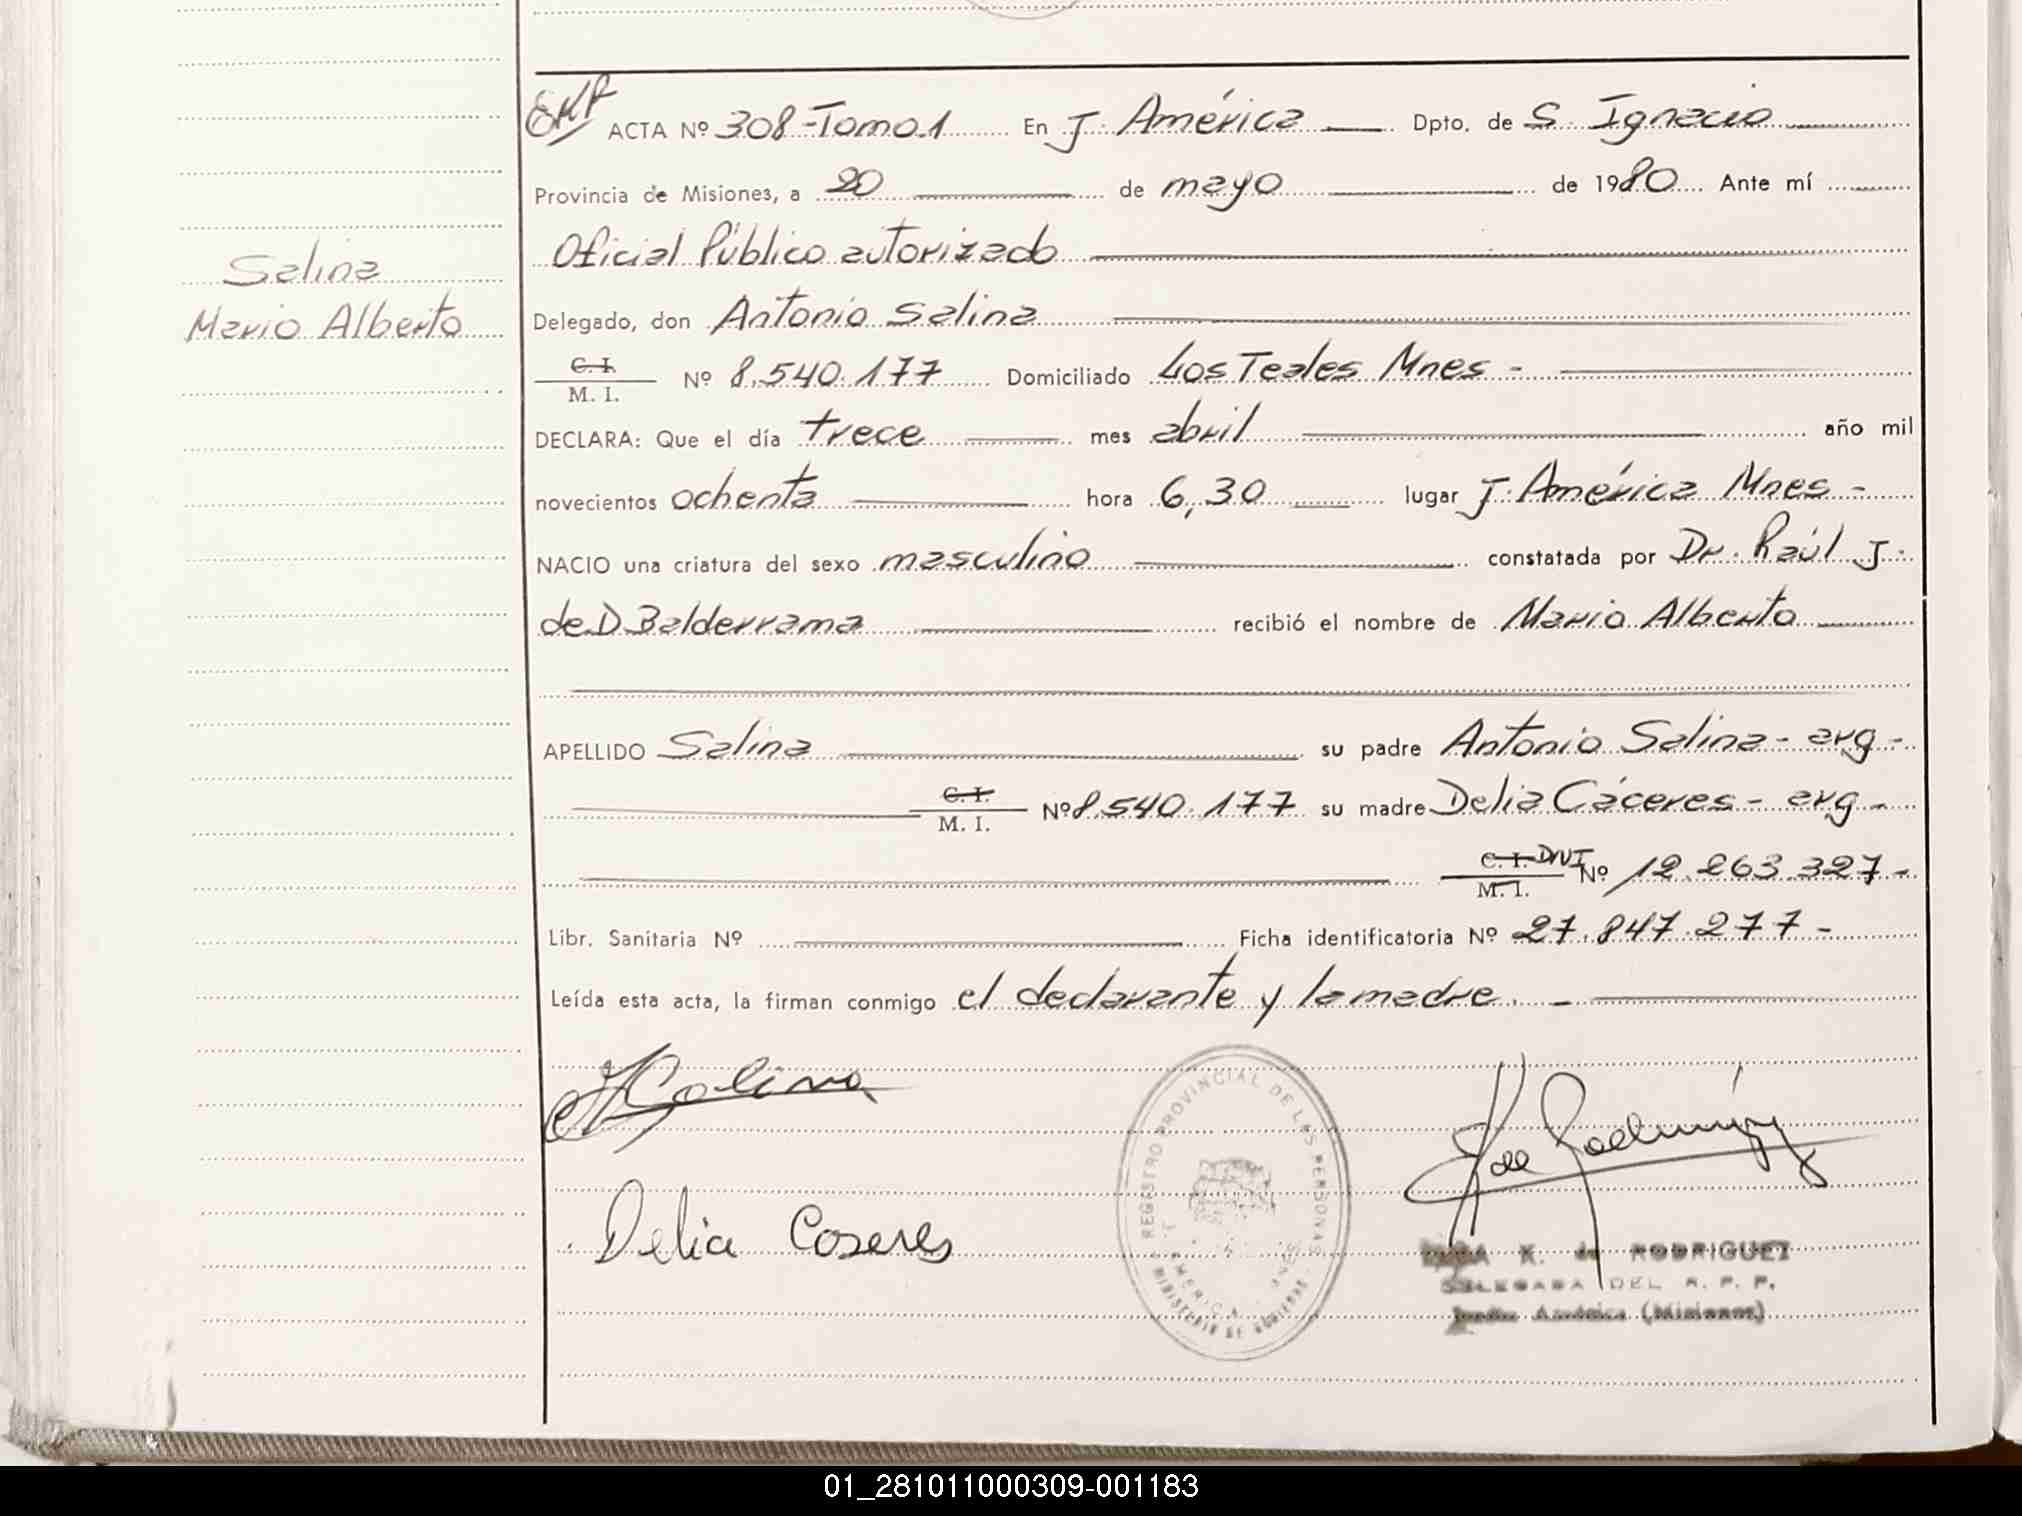 ACTA Nº 308-Tomo 1 En J. América Dpto. de S. Ignacio
Provincia de Misiones, a 20 de mayo de 1980 Ante mí
Oficial Público autorizado
Salina
Mario Alberto
Delegado, don Antonio Salina
C. I.
M. I. Nº 8.540.177 Domiciliado Los Teales Mnes -
DECLARA: Que el día trece mes abril año mil
novecientos ochenta hora 6,30 lugar J. América Mnes -
NACIO una criatura del sexo masculino constatada por Dr. Raúl J.
de D Balderrama recibió el nombre de Mario Alberto
APELLIDO Salina su padre Antonio Salina - arg -
C. I.
M. I. Nº 8.540.177 su madre Delia Cáceres - arg -
C. I. DNI
M. I. Nº 12.263.327 -
Libr. Sanitaria Nº Ficha identificatoria Nº 27.847.277 -
Leída esta acta, la firman conmigo el declarante y la madre. -
Salina
Delia Coseres
REGISTRO PROVINCIAL DE LAS PERSONAS
MINISTERIO DE GOBIERNO
AMERICA
K. de RODRIGUEZ
DELEGADA DEL R. P. P.
Jardín América (Misiones)
01_281011000309-001183